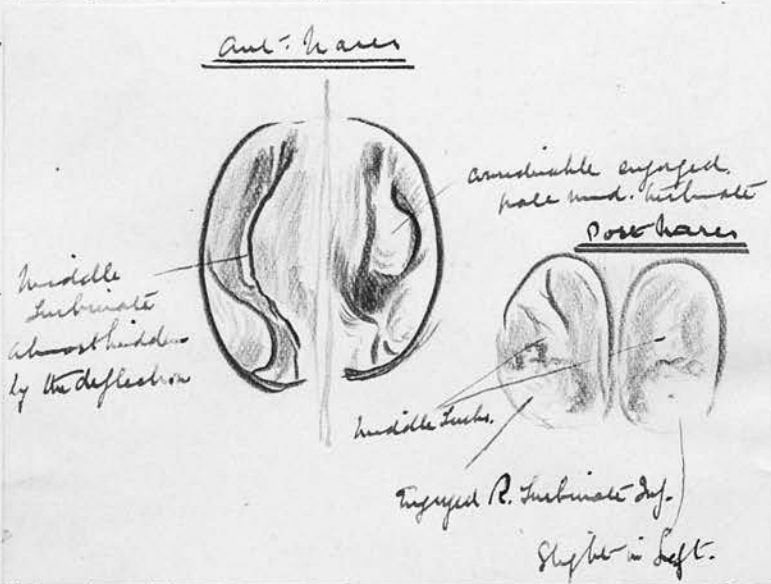 Ant. Nares
considerable engorged
pale mid. turbinate
Post Nares
Middle
Turbinate
almost hidden
by the deflection
Middle Turbs.
Engorged R. Turbinate Inf.
Slight in Left.